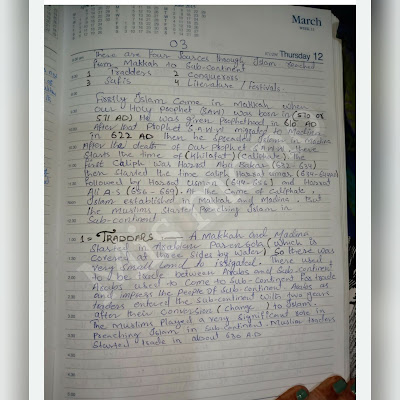 March
Thursday 12
03
There are Four Sources through Islam reached
from Makkah to Sub-continent
1 Traddors 2 conquerors
3 Sufis 4 Literature / Festivals.
Firstly Islam Come in Makkah when
our Holy Prophet (SAW) was born in (570 or
571 AD) He was given Prophethood in 610 AD
After that Prophet S.A.W.W migrated to Madina
in 622 AD then he spended Islam in Madina
After the death of our Prophet S.A.W.W, there
Starts the time of (Khilafat) (Caliphate). The
First Caliph was Hazrat Abu Bakar (632-634)
then started the time caliph Hazrat umar (634-644)
Followed by Hazrat Usman (644-656) and Hazrat
Ali A.S (656-661). At the time of caliphate,
Islam established in Makkah and Madina, but
the Muslims starts Preaching Islam in
Sub-continent.
1 = TRADDARS :- A Makkah and Madina
Started in Arabian (which is
covered at three sides by water) So there was
very small land to irrigated. There used
to be trade between Arabs and Sub-continent
Arabs uses to come to Sub-continent for trade
and impress the people of Sub-continent. Arabs as
traders entered the Sub-continent with two years
after their conversion (change) to Islam.
The Muslims played a very significant role in
Preaching Islam in Sub-continent. Muslim traders
Started trade in about 630 A.D